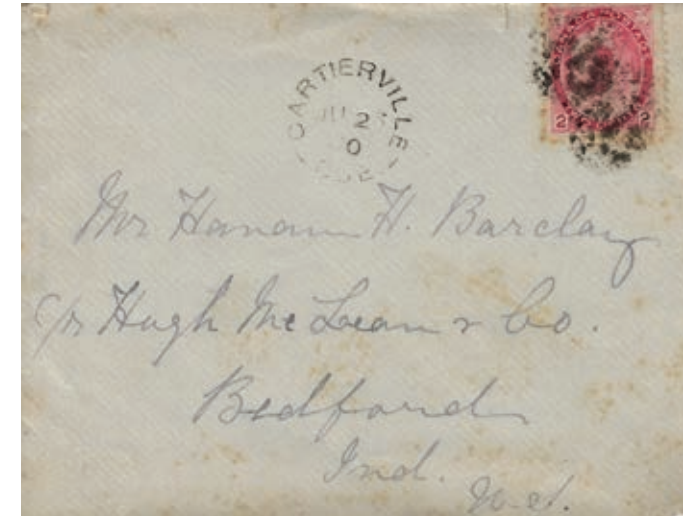 CARTIERVILLE
2
0
2 2
Mr H. Barclay
c/o Hugh McLean & Co.
Bedford
Ind.